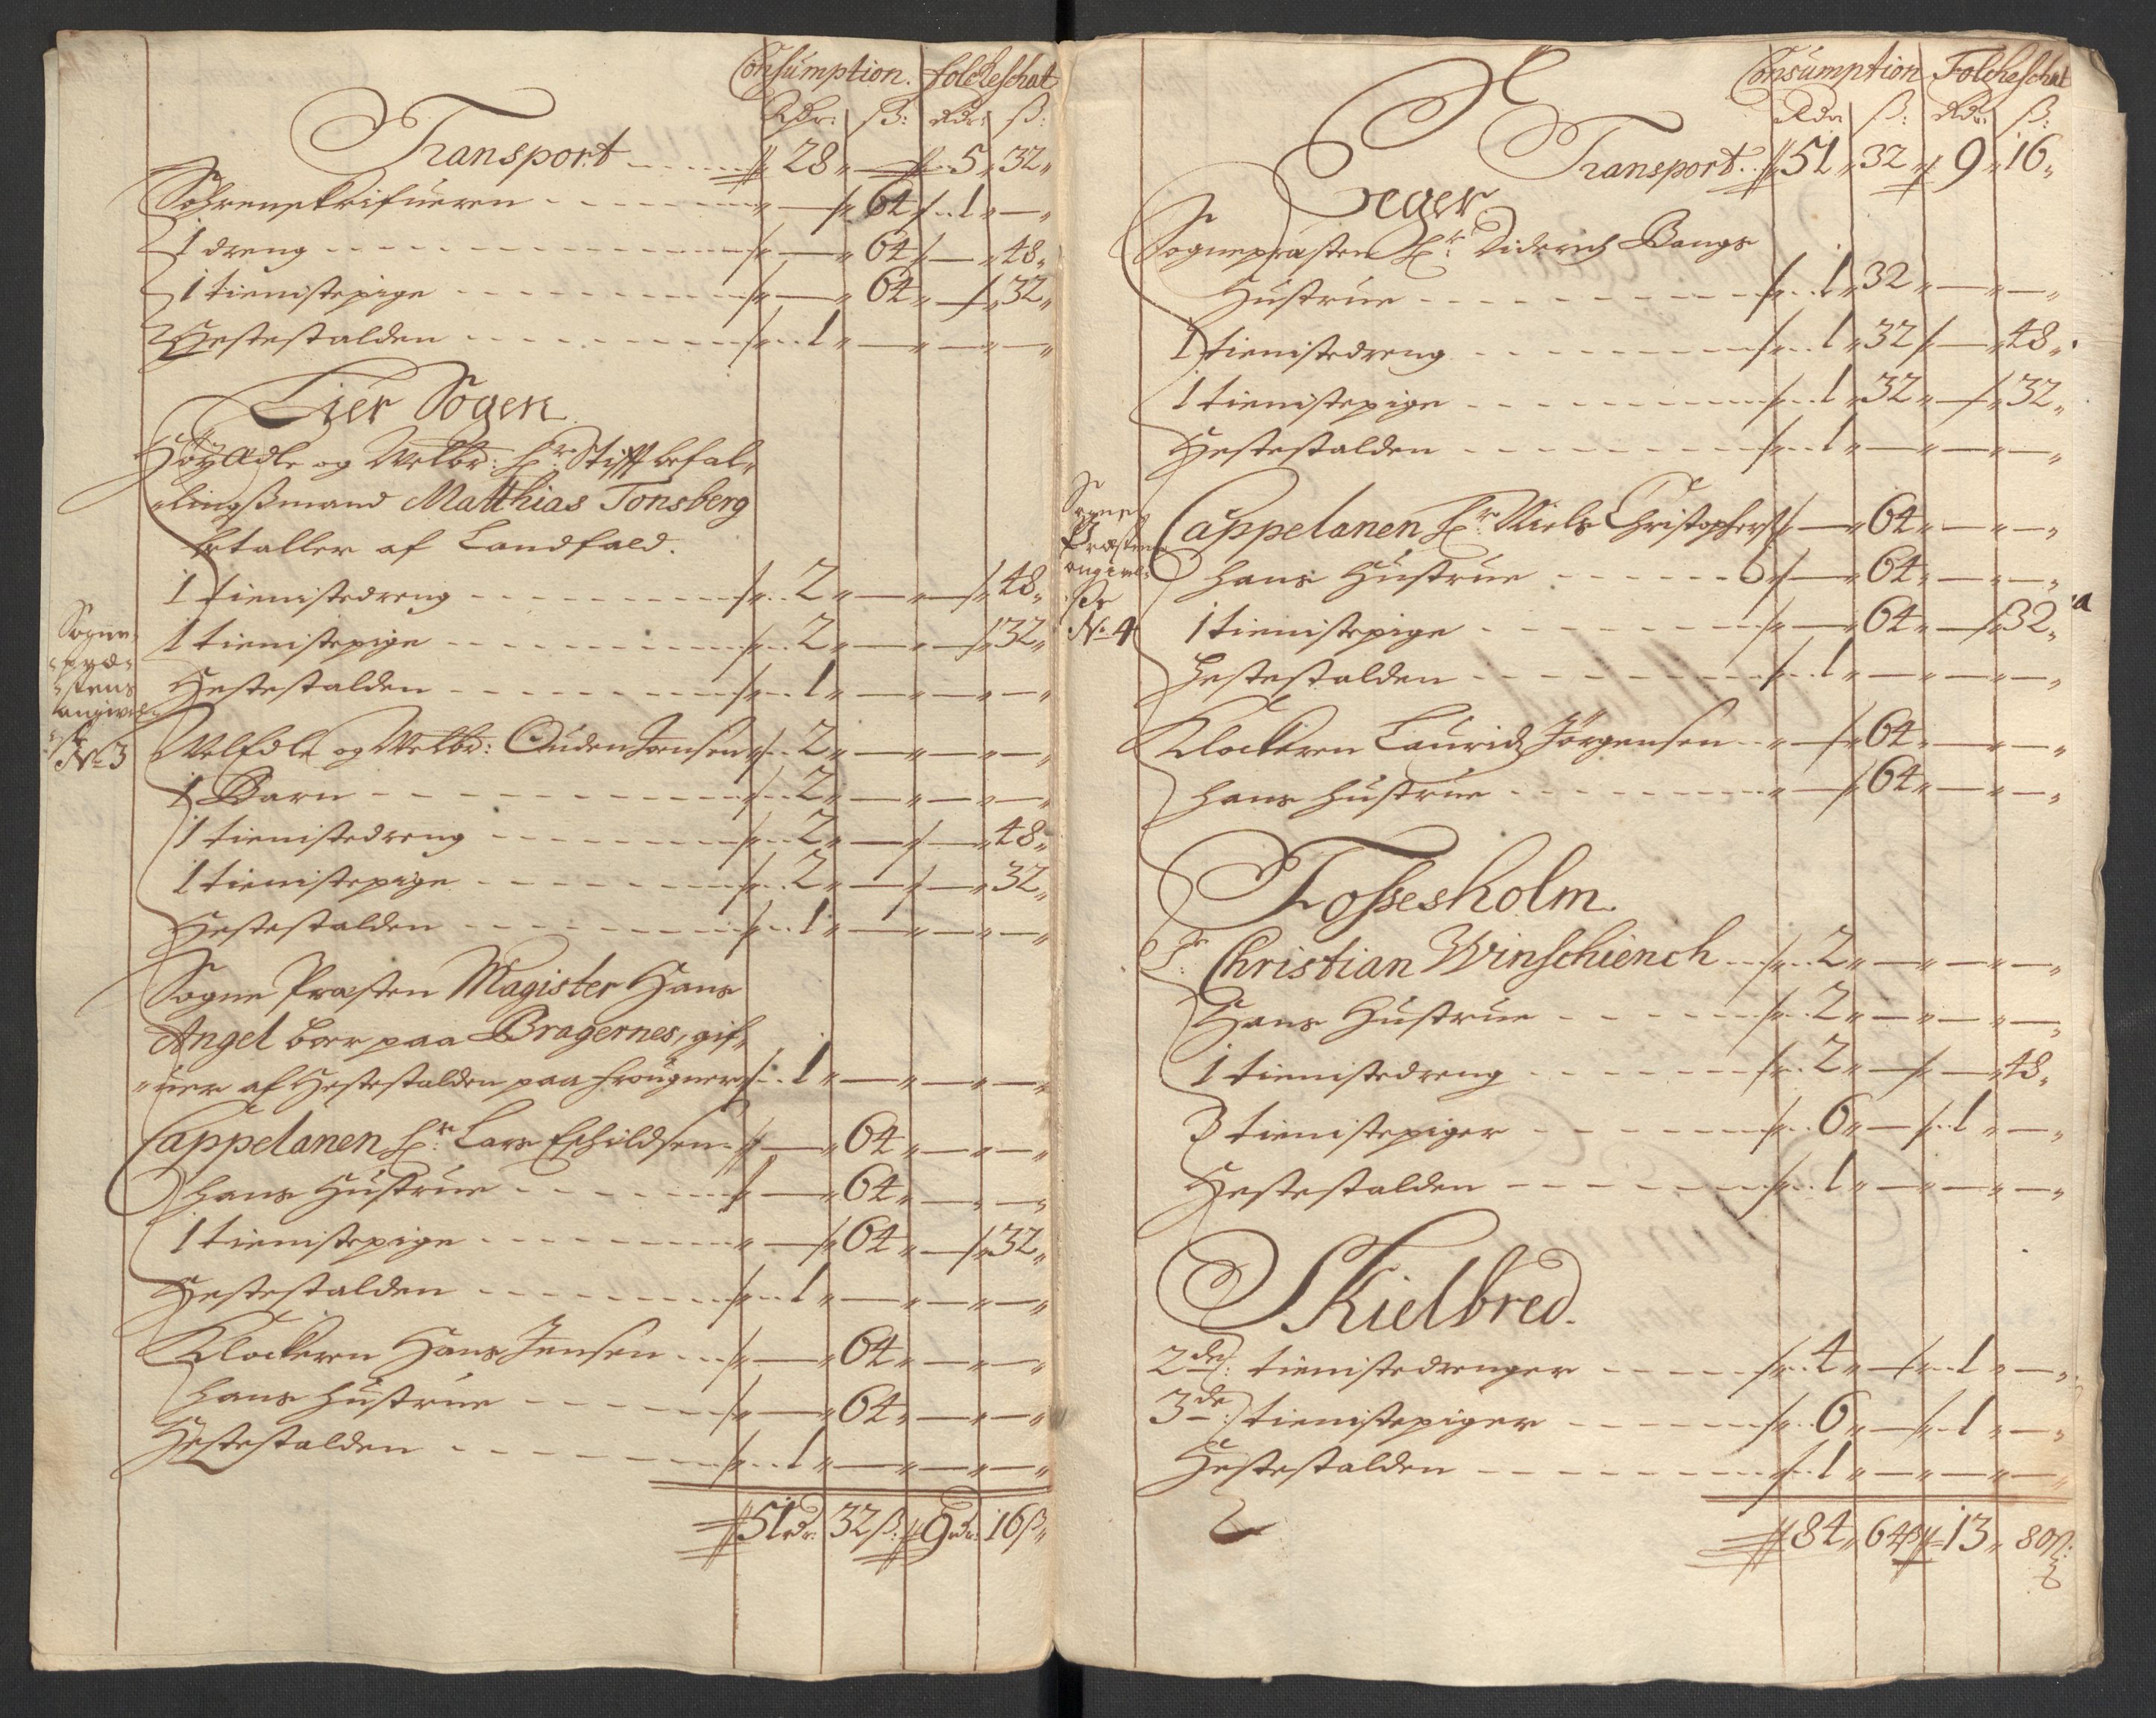 Consumption. folcheschat
Rdr: ß: Rdr: ß:
Transport 28 — 5 32
Sohrenskrifueren — 64 1 —
1 dreng — 64 — 48
1 tienistepige — 64 — 32
Hestestalden 1 — — —
Lier Sogen
HøyÆdle og Welbr: Hr: Stifft befal-
lingsmand Matthias Tonsberg
betaller af Landfald.
1 tienistedreng 2 — — 48
1 tienistepige 2 — — 32
Hestestalden 1 — — —
Sogne-
præ-
stens
angivel-
se
No 3
WelEdle og Welbr: Ouden Jensen 2 — — —
1 Barn 2 — — —
1 tienistedreng 2 — — 48
1 tienistepige 2 — — 32
Hestestalden 1 — — —
Sogne Præsten Magister Hans
Angel boer paa Bragernes, gif-
uer af Hestestalden paa frougner 1 — — —
Cappelanen Hr: Lars Eschildsen — 64 — —
hans Hustrue — 64 — —
1 tienistepige — 64 — 32
Hestestalden 1 — — —
Klockeren Hans Jensen — 64 — —
hans hustrue — 64 — —
Hestestalden 1 — — —
51 rdr. 32 ß: 9 rdr: 16 ß
Consumption Folcheschat
Rdr ß: Rdr: ß:
Transport 51 32 9 16
Eeger
Sognepræsten Hr: Diderich Bangs
Hustrue 1 32 — —
1 tienistedreng 1 32 — 48
1 tienistepige 1 32 — 32
Hestestalden 1 — — —
Sogne
Præstens
angivel-
se
No 4
Cappelanen Hr: Niels Christophers: — 64 — —
hans Hustrue — 64 — —
1 tienistepige — 64 — 32
Hestestalden 1 — — —
Klockeren Laurids Jørgensen — 64 — —
hans hustrue — 64 — —
Fossesholm.
Sr: Christian Winschiench 2 — — —
Hans Hustrue 2 — — —
1 tienistedreng 2 — — 48
3 tienistepiger 6 — 1 —
Hestestalden 1 — — —
Skielbred.
2de: tienistedrenger 4 — 1 —
3de: tienistepiger 6 — 1 —
Hestestalden 1 — — —
84 64 ß 13 80 ß: